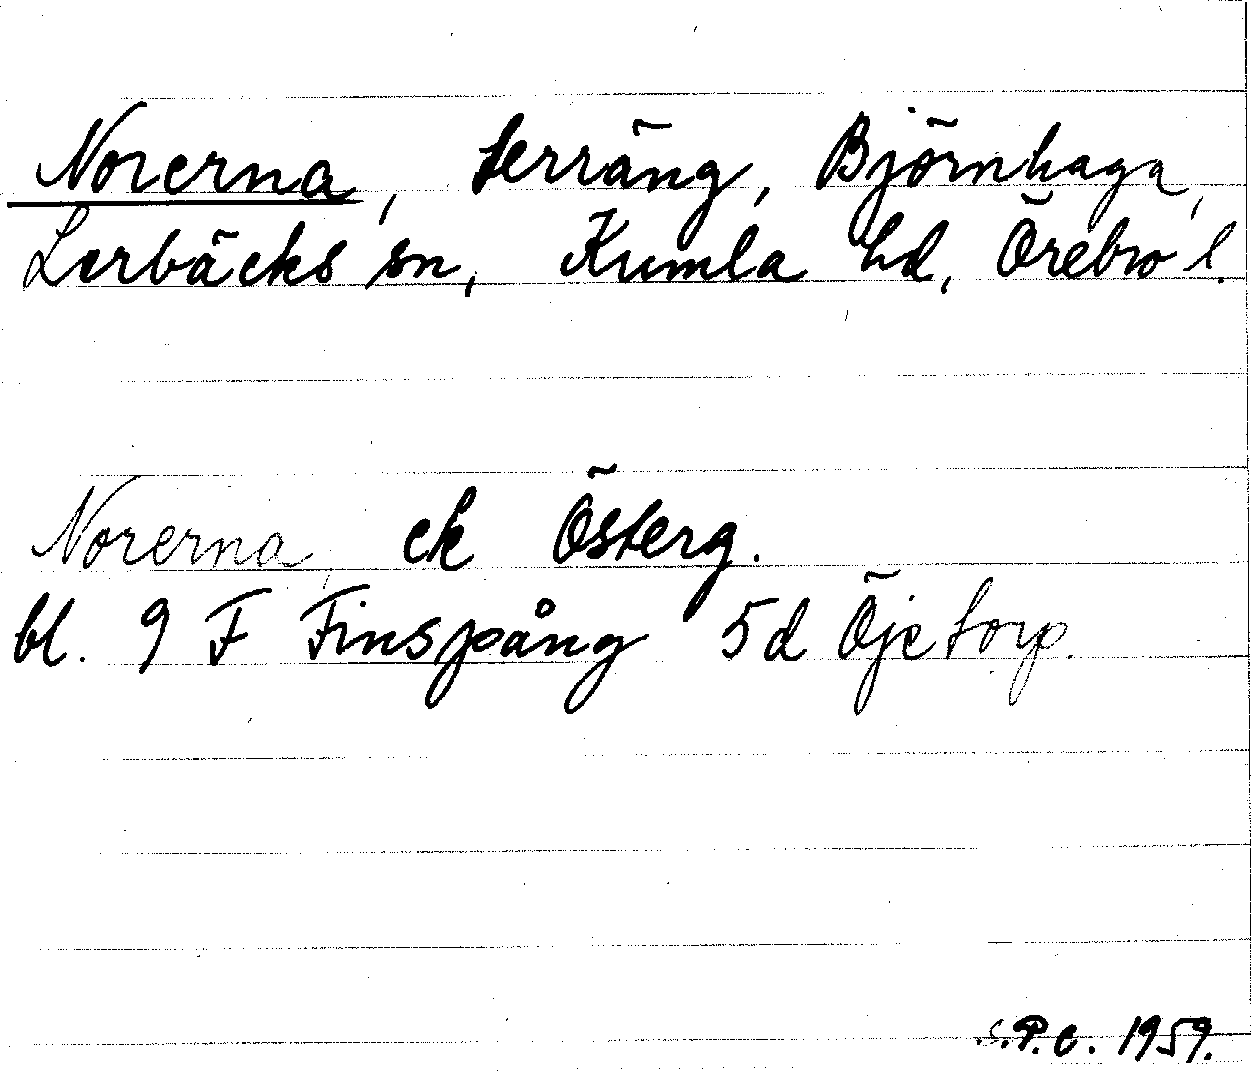 Norerna, terräng, Björnhaga,
Lerbäcks sn, Kumla hd, Örebro l.
Norerna ek Österg.
bl. 9 F Finspång 5d Öjetorp.
S.P.C. 1959.